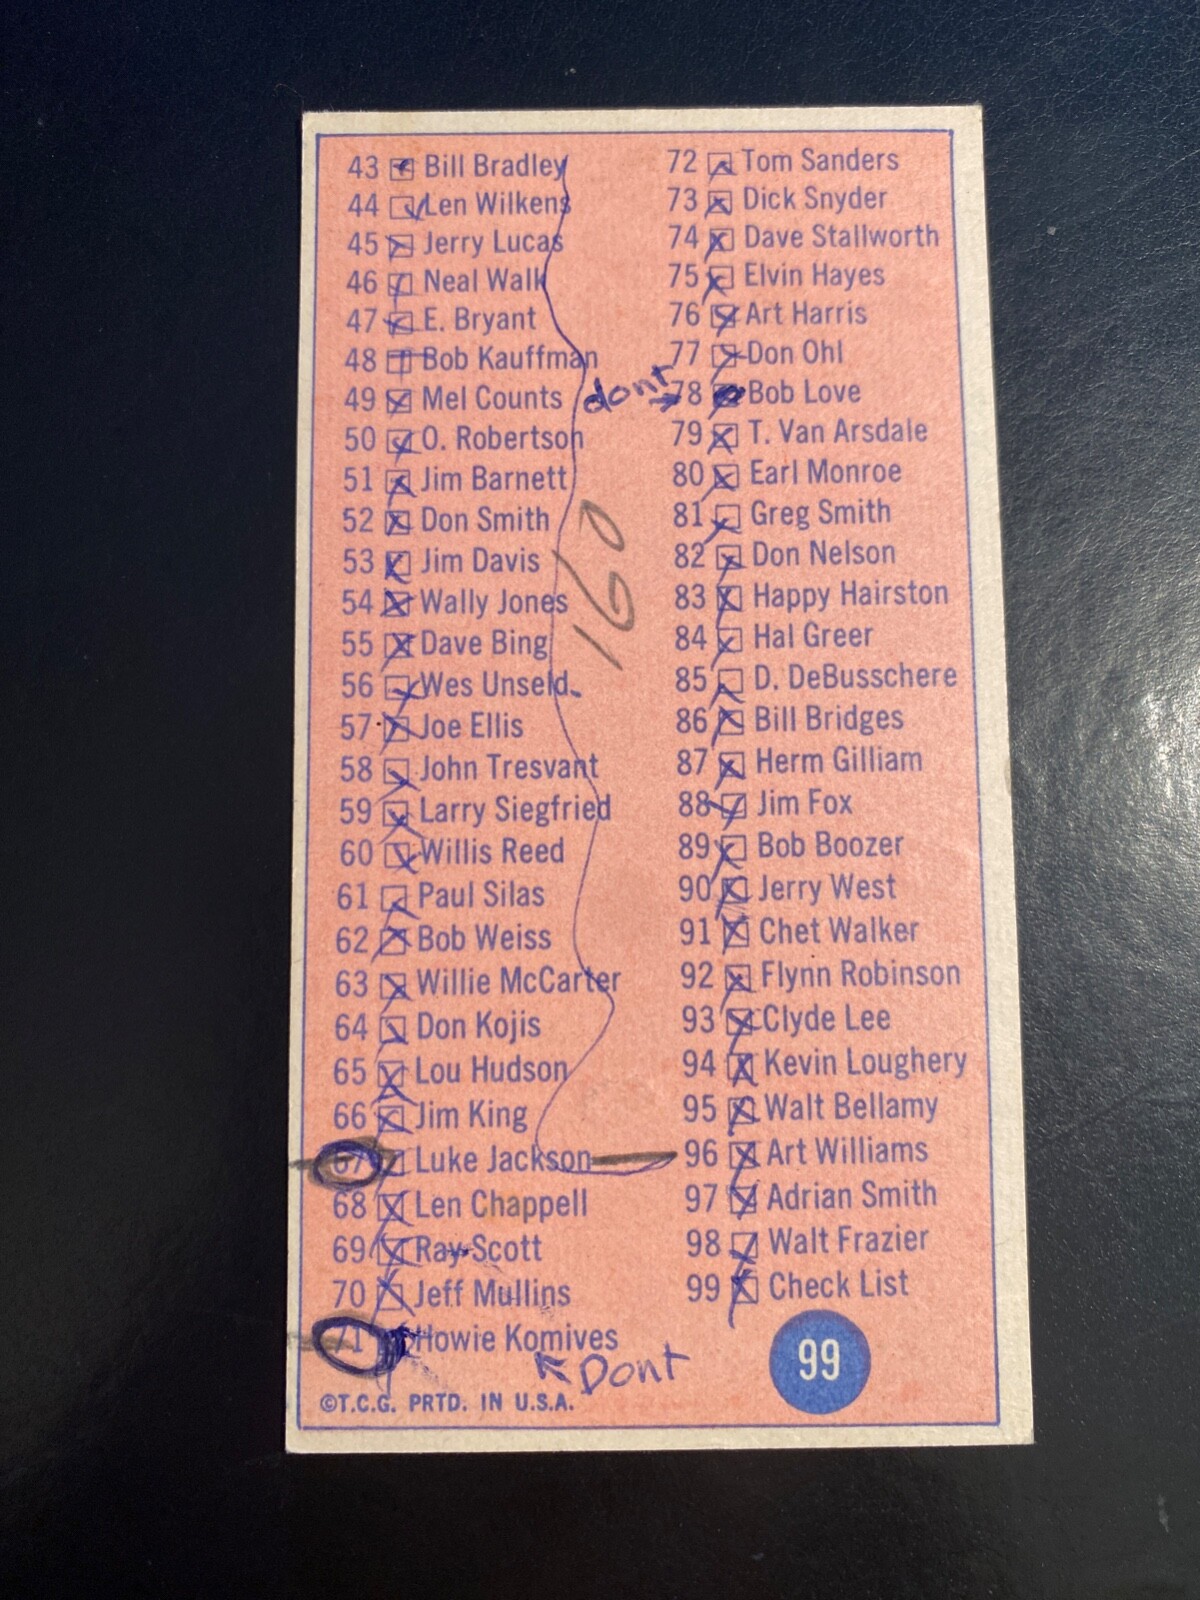 43 Bill Bradley
44 Len Wilkens
45 Jerry Lucas
46 Neal Walk
47 E. Bryant
48 Bob Kauffman
49 Mel Counts
50 O. Robertson
51 Jim Barnett
52 Don Smith
53 Jim Davis
54 Wally Jones
55 Dave Bing
56 Wes Unseld
57 Joe Ellis
58 John Tresvant
59 Larry Siegfried
60 Willis Reed
61 Paul Silas
62 Bob Weiss
63 Willie McCarter
64 Don Kojis
65 Lou Hudson
66 Jim King
67 Luke Jackson
68 Len Chappell
69 Ray Scott
70 Jeff Mullins
71 Howie Komives
Dont
©T.C.G. PRTD. IN U.S.A.
160
72 Tom Sanders
73 Dick Snyder
74 Dave Stallworth
75 Elvin Hayes
76 Art Harris
77 Don Ohl
dont
78 Bob Love
79 T. Van Arsdale
80 Earl Monroe
81 Greg Smith
82 Don Nelson
83 Happy Hairston
84 Hal Greer
85 D. DeBusschere
86 Bill Bridges
87 Herm Gilliam
88 Jim Fox
89 Bob Boozer
90 Jerry West
91 Chet Walker
92 Flynn Robinson
93 Clyde Lee
94 Kevin Loughery
95 Walt Bellamy
96 Art Williams
97 Adrian Smith
98 Walt Frazier
99 Check List
99